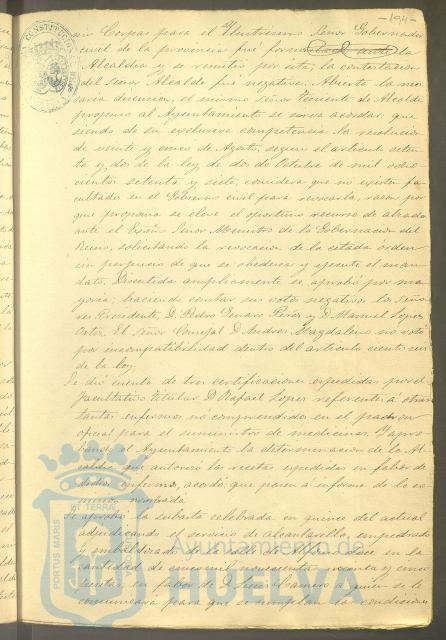 -194-
CONSTITUCIONAL
nio Corpas para el Ilustrísimo Señor Gobernador
civil de la provincia fué formu la
Alcaldía y se remitió por ésta, la contestación
del Señor Alcalde fué negativa. Abierta la nece
saria discusión, el mismo Señor Teniente de Alcalde
propuso al Ayuntamiento se sirva acordar, que
siendo de su exclusiva competencia la resolución
de veinte y cinco de Agosto, según el artículo seten
ta y dos de la ley de dos de Octubre de mil ocho
cientos setenta y siete, considera que no existen fa
cultades en el Gobierno civil para revocarla, razón por
que propone se eleve el oportuno recurso de alzada
ante el Excmo Señor Ministro de la Gobernación del
Reino, solicitando la revocación de la citada orden
sin perjuicio de que se obedezca y ejecute el man
dato. Discutida ampliamente se aprobó por ma
yoría; haciendo constar sus votos negativos los Seño
res Presidente, D. Pedro Perez y D. Manuel Lopez
Ortiz. El Señor Concejal D. Andres Magdaleno no votó
por incompatibilidad dentro del artículo ciento seis
de la ley.
Se dió cuenta de tres certificaciones expedidas por el
Facultativo titular D. Rafael Lopez referente a otros
tantos enfermos no comprendidos en el padrón
oficial para el suministro de medicinas. Y apro
bando el Ayuntamiento la determinación de la Al
caldía que autorizó las recetas expedidas en fabor de
dichos enfermos, acordó que pasen a informe de la co
misión nombrada.
Se aprobó la subasta celebrada en quince del actual
adjudicando el servicio de alcantarilla, empedrado
y embaldosado de la calle de Alfonso doce en la
cantidad de seis mil novecientas noventa y cinco
pesetas, en fabor de D. Luis Camero a quien se le
comunicará para que se cumplan las condiciones
PORTUS MARIS ET TERRAE
Ayuntamiento de
HUELVA